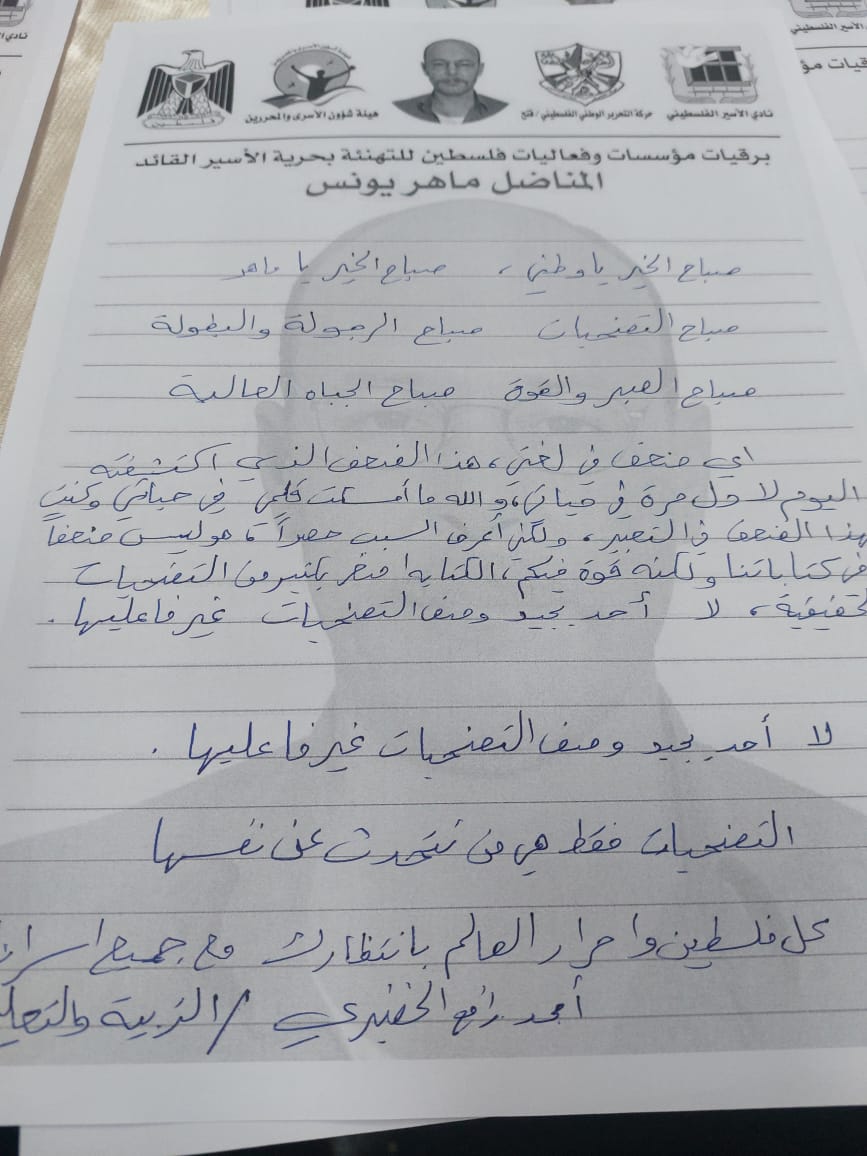 نادي الأسير الفلسطيني
حركة التحرير الوطني الفلسطيني / فتح
هيئة شؤون الأسرى والمحررين
فلسطين
برقيات مؤسسات وفعاليات فلسطين للتهنئة بحرية الأسير القائد
المناضل ماهر يونس
صباح الخير يا وطني ، صباح الخير يا ماهر
صباح التضحيات صباح الرجولة والبطولة
صباح الصبر والقوة صباح الجباه العالية
اي ضعف في لغتي ، هذا الضعف الذي اكتشفته
اليوم لاول مرة في حياتي ، والله ما أمسكت قلمي في حياتي وكنت
بهذا الضعف في التعبير ، ولكني أعرف السبب حصراً ، هو ليس ضعفا
في كتاباتنا ولكنه قوة فيكم ، الكتابه اصغر بكثير من التضحيات
الحقيقية ، لا أحد يجيد وصف التضحيات غير فاعليها .
لا أحد يجيد وصف التضحيات غير فاعليها .
التضحيات فقط هي من تتحدث عن نفسها
كل فلسطين واحرار العالم بانتظارك مع جميع
أمجد رافع الخضيري / التربية والتعليم